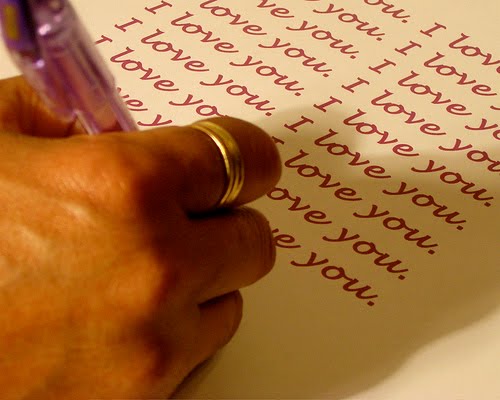 you. I love
love you. I love
I love you. I love you.
I love you. I love you.
I love you. I love you.
I love you. I love you.
love you. I love you.
love you.
you.